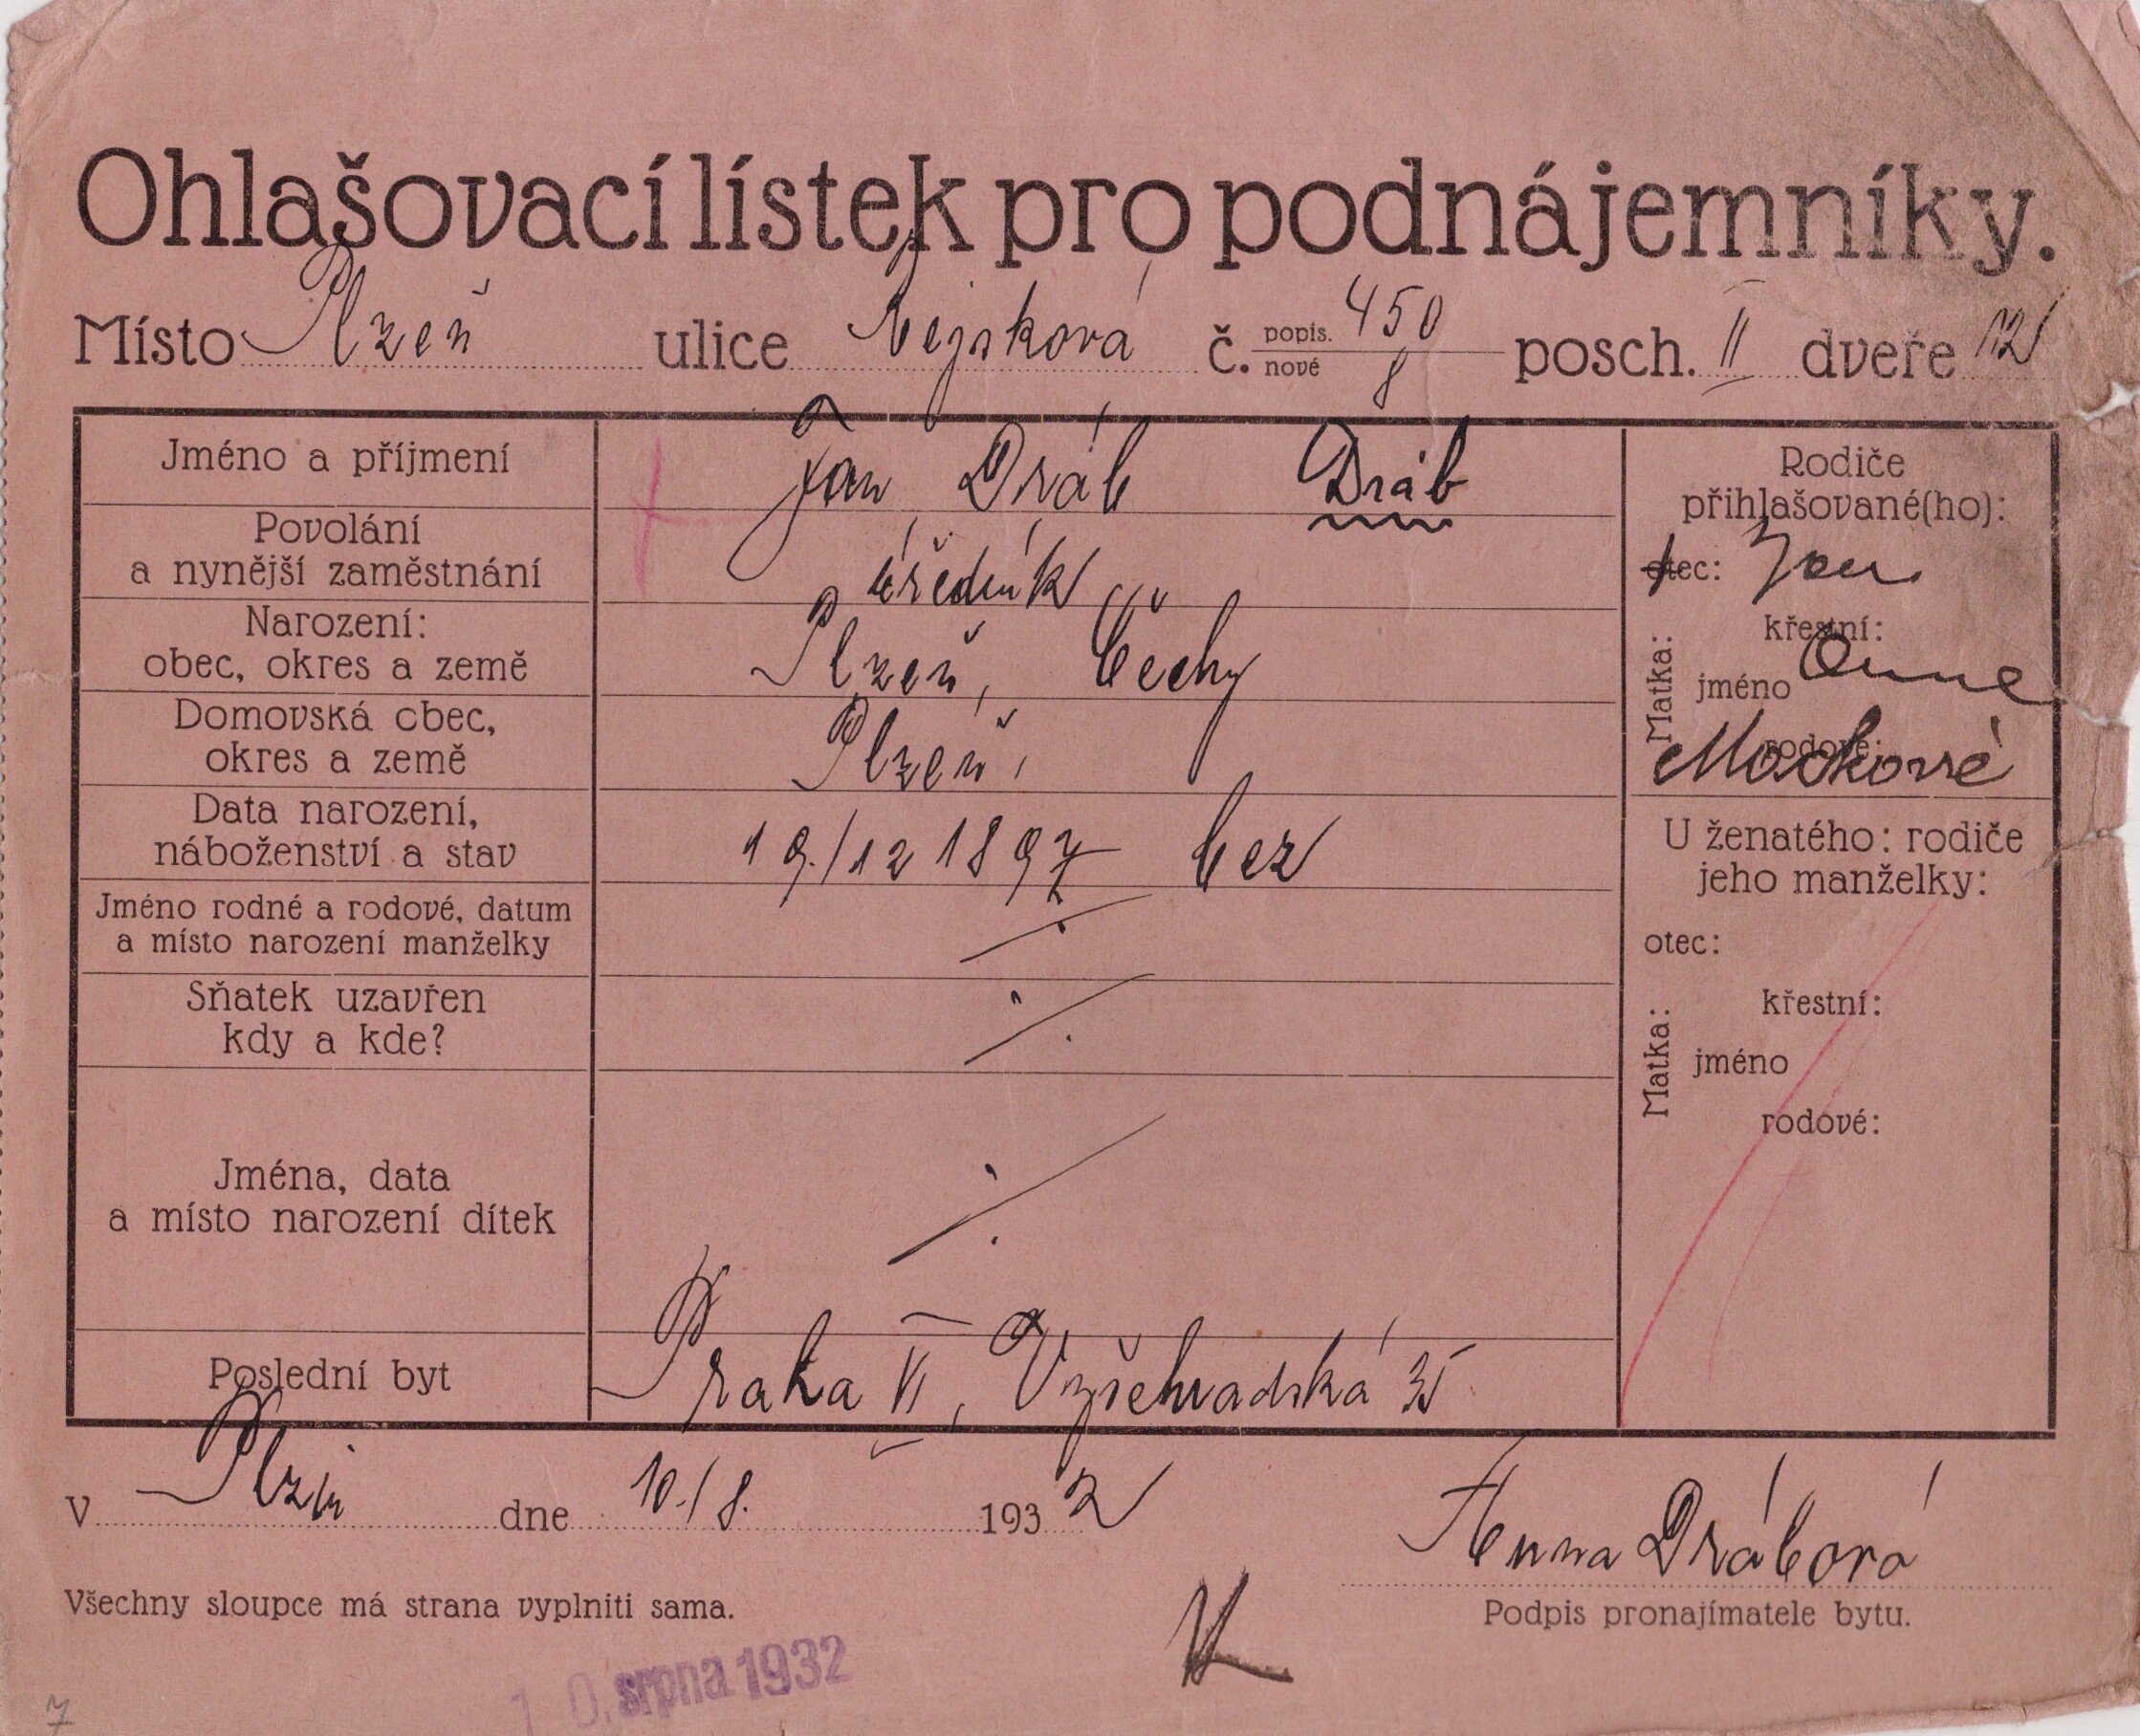 Ohlašovací lístek pro podnájemníky.
Místo Plzeň ulice Nejsková č. popis. 450 nové 8 posch. II dveře 12
Jméno a příjmení Jan Dráb Dráb
Povolání
a nynější zaměstnání úředník
Narození:
obec, okres a země Plzeň, Čechy
Domovská obec,
okres a země Plzeň,
Data narození,
náboženství a stav 19./12 1897 bez
Jméno rodné a rodové, datum
a místo narození manželky
Sňatek uzavřen
kdy a kde?
Jména, data
a místo narození dítek
Poslední byt Praha VI, Vyšehradská 35
Rodiče
přihlašované(ho):
otec: Jan
Matka:
křestní:
jméno Anna
rodové:
U ženatého: rodiče
jeho manželky:
otec:
Matka:
křestní:
jméno
rodové:
V Plzni dne 10./8. 1932
Anna Drábová
Všechny sloupce má strana vyplniti sama.
Podpis pronajímatele bytu.
10. srpna 1932
7